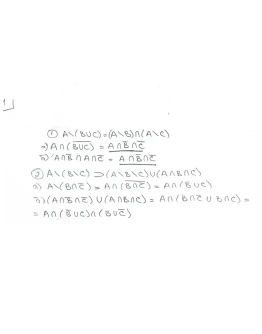 1
① A\(B∪C)=(A\B)∩(A\C)
a) A∩(B̅∪̅C̅)= A∩B̅∩C̅
б) A∩B̅∩A∩C̅ = A∩B̅∩C̅
② A\(B\C) ⊃(A\B\C)∪(A∩B∩C)
a) A\(B∩C̅) = A∩(B̅∩̅C̅) = A∩(B̅∪C)
б)(A∩B̅∩C̅)∪(A∩B∩C)= A∩(B̅∩C̅ ∪ B∩C)=
= A∩(B̅∪C)∩(B∪C̅)